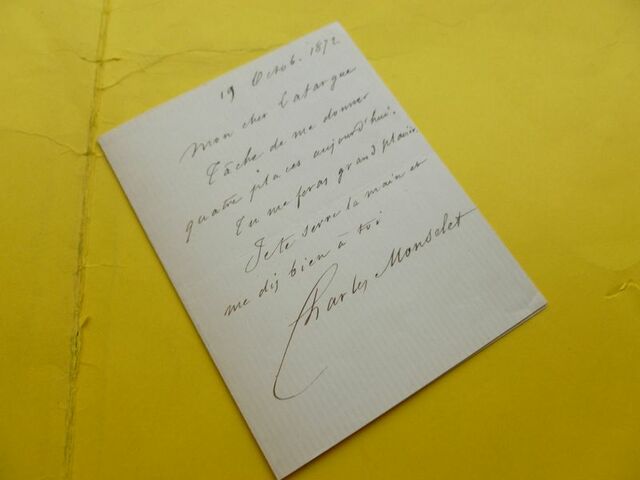 19 Octob. 1872
Mon cher Latargue
Tâche de me donner
quatre places aujourd'hui.
Tu me feras grand plaisir
Je te serre la main et
me dis bien à toi
Charles Monselet